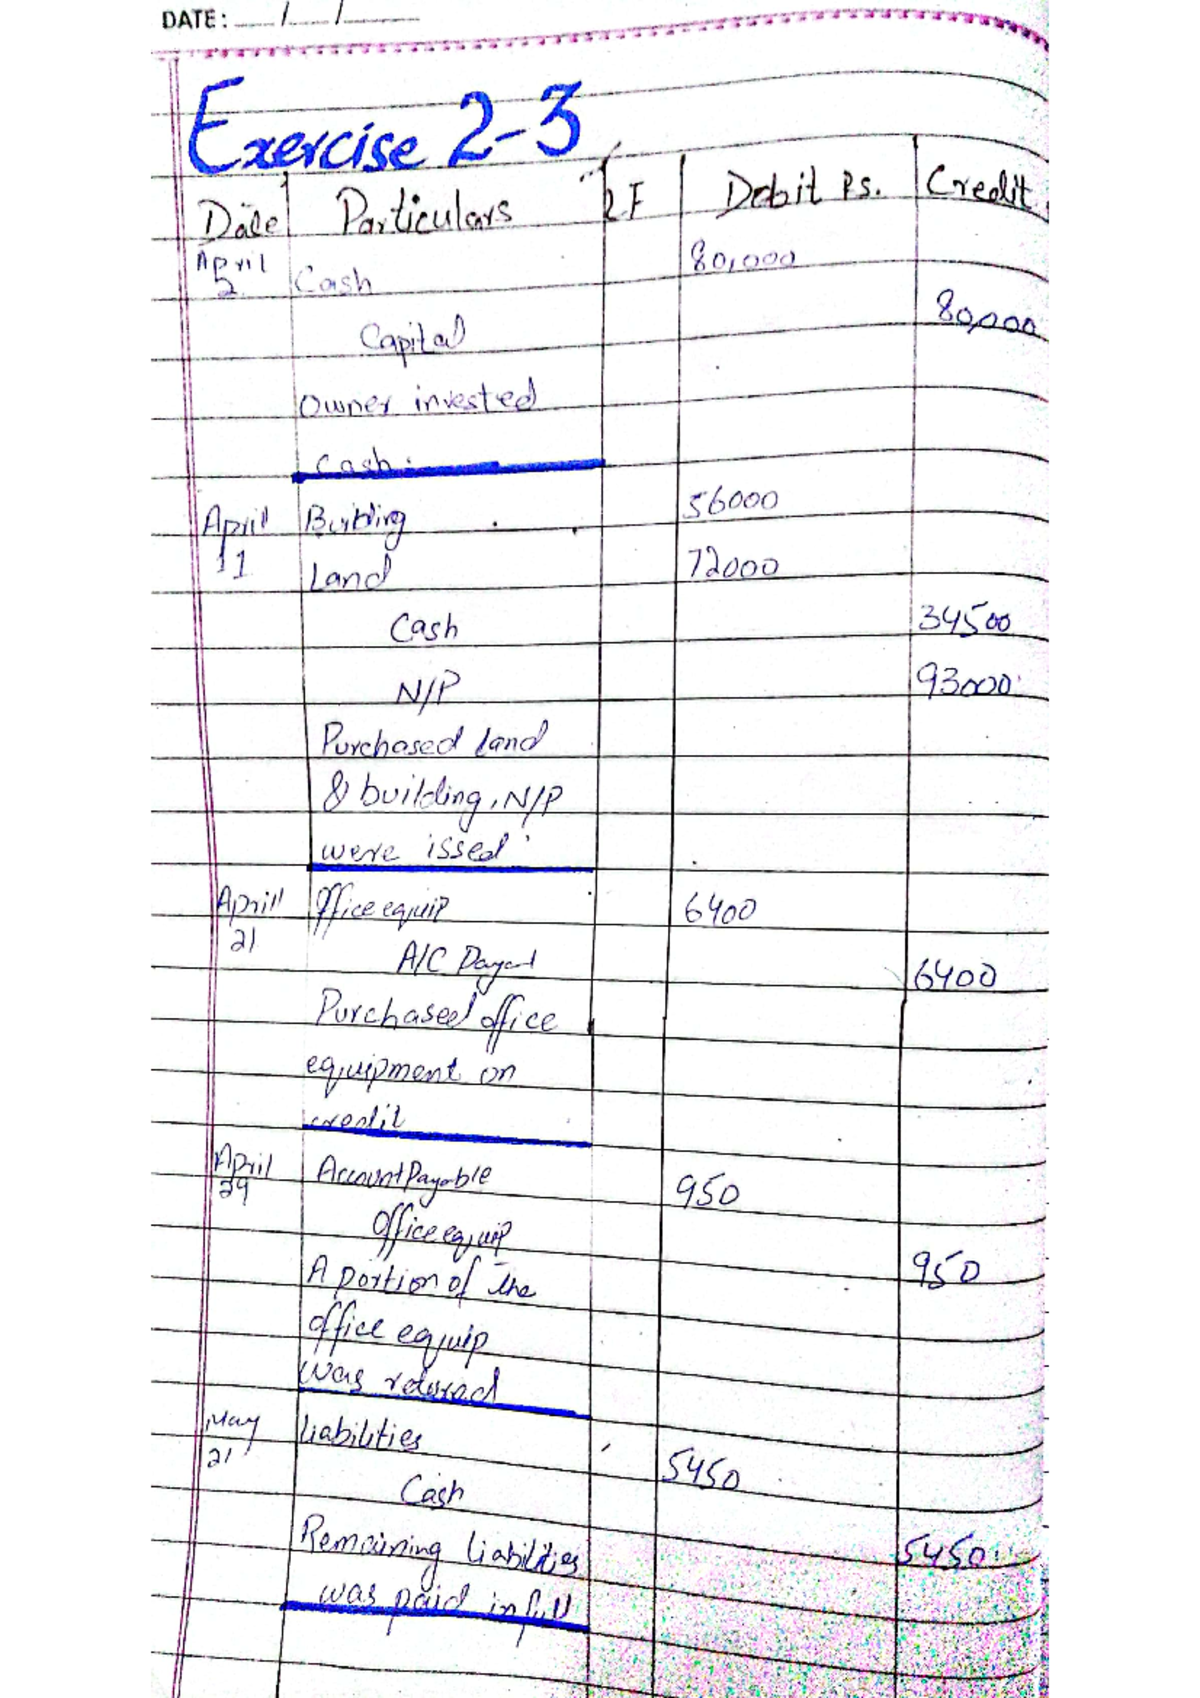 DATE: / /
Exercise 2-3
Date Particulars LF Debit Ps. Credit
April 2 Cash 80,000
Capital 80,000
Owner invested
Cash.
April 11 Building 56000
Land 72000
Cash 34500
N/P 93000
Purchased land
& building, N/P
were issed
April 21 Office equip 6400
A/C Payant 6400
Purchased office
equipment on
credit
April 29 Account Payable 950
Office equip 950
A portion of the
office equip
was
May 21 Liabilities 5450
Cash 5450
Remaining Liabilities
was paid in full